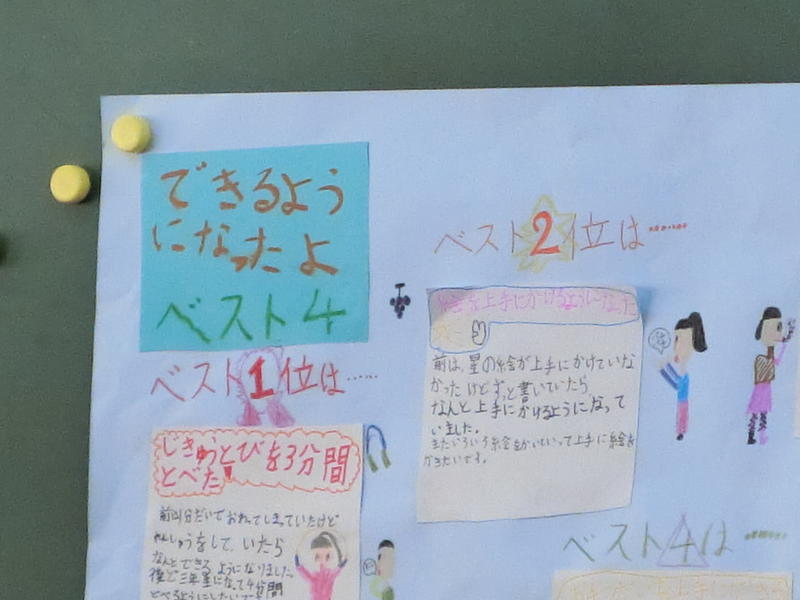 できるよう
になったよ
ベスト4
ベスト1位は……
じきゅうとびを3分間
とべた
前は1分だいでおわってしまっていたけど
れんしゅうをして、いたら
なんとできるようになりました。
後で三年星になって4分間
とべるようにしたいです
ベスト2位は……
絵を上手にかけるようになった
前は、星の絵が上手にかけていな
かったけどずっと書いていたら
なんと上手にかけるようになって
いました。
またいろいろ絵をかいていって上手に絵を
かきたいです。
ベスト4は……